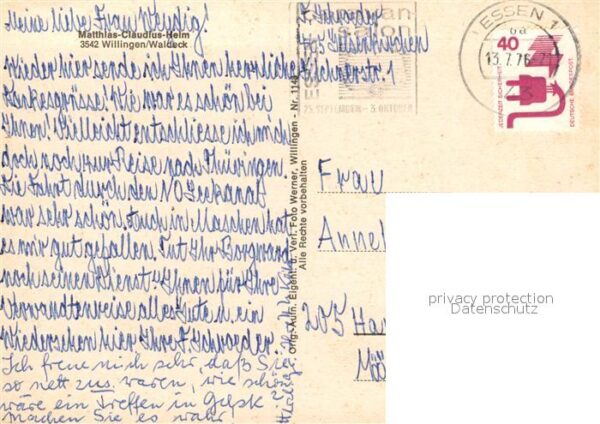 Meine liebe Frau Wendig!
Matthias-Claudius-Heim
3542 Willingen/Waldeck
Wieder hier sende ich Ihnen herrliche
Dankesgrüsse! Wie war es schön bei
Ihnen! Vielleicht entschliesse ich mich
doch noch zur Reise nach Thüringen.
Die Fahrt durch den NO
war sehr schön. Auch in Maschen hat
es mir gut gefallen. Tut Ihr
noch seinen Dienst? Ihnen für Ihre
Verwandtenreise alles Gute u. ein
Wiedersehen hier Ihre F. Schroeder.
Ich freue mich sehr, daß Sie
so nett zus. waren, wie schön
wäre ein Treffen in Gelsk.?
Machen Sie es wahr!
Orig.-Aufn. Eigent. u. Verl. Foto Werner, Willingen - Nr. 1148
Alle Rechte vorbehalten
F. Schroeder
Gelsenkirchen
str. 1
salon
23. SEPTEMBER - 3. OKTOBER
ESSEN 1
13.7.76
40
JEDERZEIT SICHERHEIT
DEUTSCHE BUNDESPOST
Frau
Annel
205 Ha
privacy protection
Datenschutz